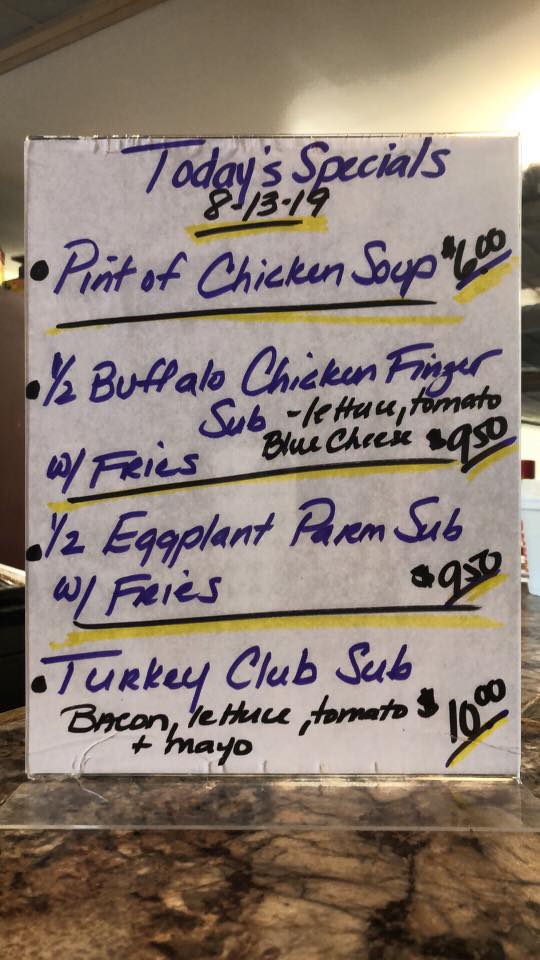 Today's Specials
8-13-19
• Pint of Chicken Soup $6.00
• 1/2 Buffalo Chicken Finger
Sub - lettuce, tomato
Blue Cheese $9.50
w/ Fries
• 1/2 Eggplant Parm Sub
w/ Fries $9.50
• Turkey Club Sub
Bacon, lettuce, tomato $10.00
+ mayo